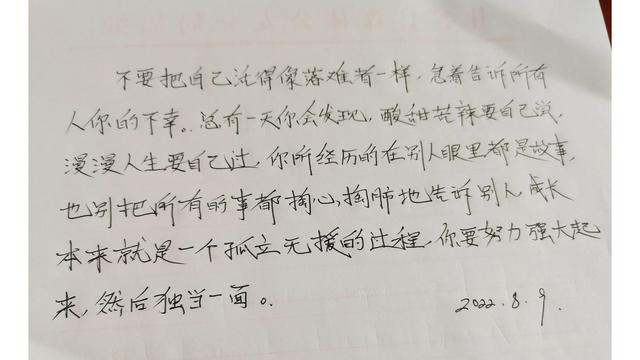 不要把自己活得像落难者一样，急着告诉所有
人你的不幸。总有一天你会发现，酸甜苦辣要自己尝，
漫漫人生要自己过，你所经历的在别人眼里都是故事，
也别把所有的事都掏心，掏肺地告诉别人，成长
本来就是一个孤立无援的过程，你要努力强大起
来，然后独当一面。
2022.8.9.